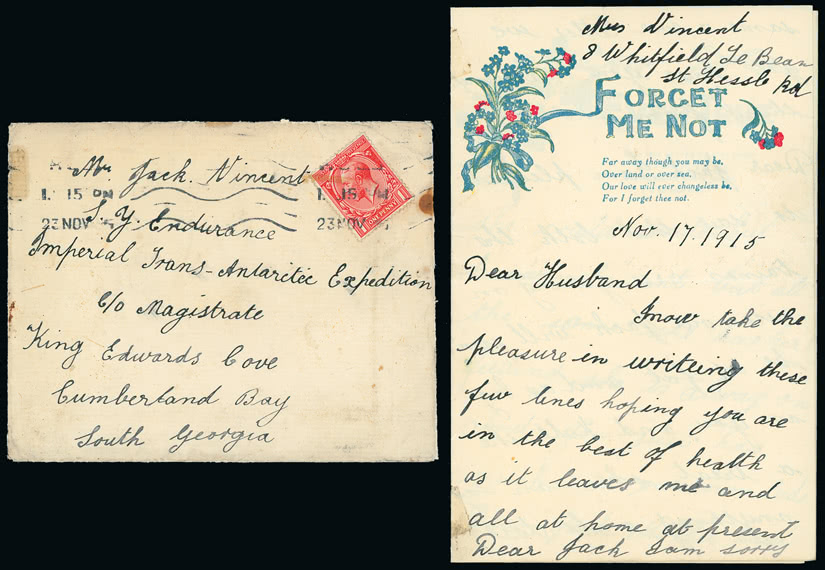 Mr Jack. Vincent
1. 15 PM
23 NOV
1. 15 PM
23 NOV
ONE PENNY
S.Y. Endurance
Imperial Trans-Antaritéc Expedition
C/o Magistrate
King Edwards Cove
Cumberland Bay
South Georgia
Mrs Vincent
8 Whitfield Te Bean
St Hessle Rd
FORGET
ME NOT
Far away though you may be,
Over land or over sea,
Our love will ever changeless be,
For I forget thee not.
Nov. 17. 1915
Dear Husband
I now take the
pleasure in writeing these
few lines hoping you are
in the best of health
as it leaves me and
all at home at present
Dear Jack I am sorry